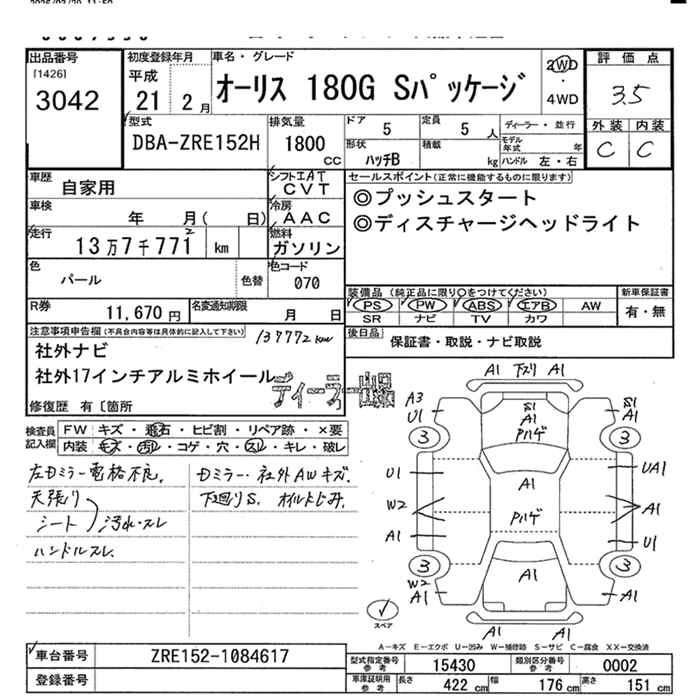 出品番号
[1426]
3042
初度登録年月
平成
21 2月
車名・グレード
オーリス 180G Sパッケージ
2WD
4WD
評価点
3.5
外装 内装
C C
型式
DBA-ZRE152H
排気量
1800
CC
ドア 5
定員 5人
形状
ハッチB
積載 kg
ディーラー・並行
モデル年式 年
ハンドル 左・右
車歴
自家用
シフト IAT
CVT
車検
年 月( 日)
冷房
AAC
走行
13万7千771 km
2
燃料
ガソリン
色
パール
色替
色コード
070
R券
11,670円
名変通知期限
月 日
セールスポイント(正常に機能するものに限ります)
◎プッシュスタート
◎ディスチャージヘッドライト
装備品 (純正品に限り〇をつけてください)
PS PW ABS エアB AW
SR ナビ TV カワ
新車保証書
有・無
後日品
保証書・取説・ナビ取説
注意事項申告欄(不具合内容等は具体的に記入して下さい)
137772km
社外ナビ
社外17インチアルミホイール
ディーラー出品
修復歴 有〔箇所
検査員
記入欄
FW キズ・飛石・ヒビ割・リペア跡・×要
内装 キズ・汚れ・コゲ・穴・スレ・キレ・破レ
左Dミラー電格不良.
天張り
シート
汚れ・スレ
ハンドルスレ.
Dミラー・社外AWキズ.
下廻りS. オイルにじみ.
A1 下スリ A1
A3
U1
S1
A1
Pハゲ
S1
A1
3
3
U1
A1
UA1
W2
A1
Pハゲ
A1
U1
3
3
W2
A1
A1
A1
A1 A1
スペア
A-キズ E-エクボ U-凹み W-補修跡 S-サビ C-腐食 XX-交換済
車台番号
ZRE152-1084617
登録番号
型式指定番号
参考
15430
類別区分番号
参考
0002
車庫証明用
参考
長さ 422cm
幅 176cm
高さ 151cm